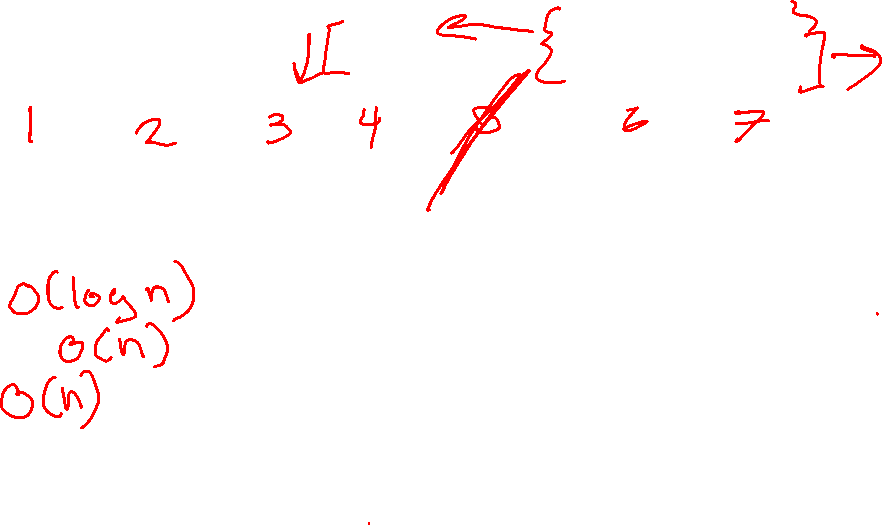 1 2 3 4 6 7
O(log n)
O(n)
O(n)